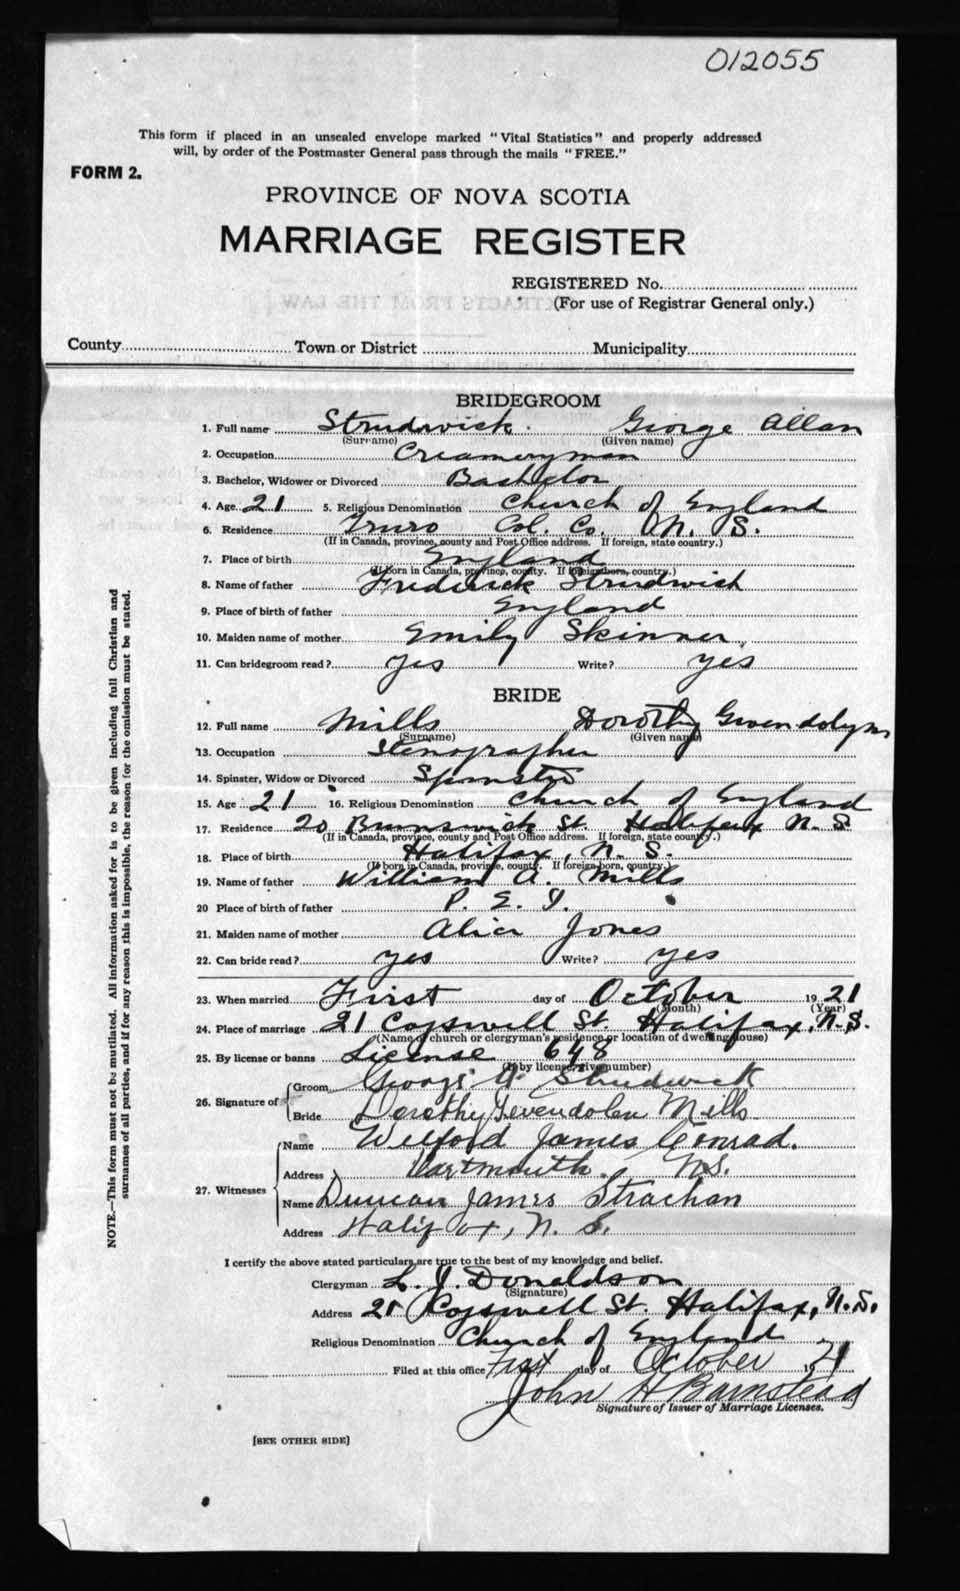 012055
This form if placed in an unsealed envelope marked "Vital Statistics" and properly addressed
will, by order of the Postmaster General pass through the mails "FREE."
FORM 2.
PROVINCE OF NOVA SCOTIA
MARRIAGE REGISTER
REGISTERED No.
(For use of Registrar General only.)
County Town or District Municipality
BRIDEGROOM
1. Full name Strudwick. George Allan
(Surname) (Given name)
2. Occupation Creameryman
3. Bachelor, Widower or Divorced Bachelor
4. Age 21 5. Religious Denomination Church of England
6. Residence Truro Col. Co. N. S.
(If in Canada, province, county and Post Office address. If foreign, state country.)
7. Place of birth England
(If born in Canada, province, county. If foreign born, country.)
8. Name of father Frederick Strudwick
9. Place of birth of father England
10. Maiden name of mother Emily Skinner
11. Can bridegroom read? yes Write? yes
BRIDE
12. Full name Mills Dorothy Gwendolyn
(Surname) (Given name)
13. Occupation Stenographer
14. Spinster, Widow or Divorced Spinster
15. Age 21 16. Religious Denomination Church of England
17. Residence 20 Brunswick St. Halifax N. S.
(If in Canada, province, county and Post Office address. If foreign, state country.)
18. Place of birth Halifax, N. S.
(If born in Canada, province, county. If foreign born, country.)
19. Name of father William A. Mills
20 Place of birth of father P. E. I.
21. Maiden name of mother Alice Jones
22. Can bride read? yes Write? yes
23. When married First day of October 1921
(Month) (Year)
24. Place of marriage 21 Cogswell St. Halifax, N.S.
(Name of church or clergyman's residence or location of dwelling house)
25. By license or banns License 648
(If by license, give number)
26. Signature of Groom George A Strudwick
Bride Dorothy Gwendolen Mills
27. Witnesses Name Welford James Conrad.
Address Dartmouth. N.S.
Name Duncan James Strachan
Address Halifax, N. S.
I certify the above stated particulars are true to the best of my knowledge and belief.
Clergyman L. J. Donaldson
(Signature)
Address 21 Cogswell St. Halifax, N.S.
Religious Denomination Church of England
Filed at this office First day of October 1921
John H Barnstead
Signature of Issuer of Marriage Licenses.
[SEE OTHER SIDE]
NOTE.—This form must not be mutilated. All information asked for is to be given including full Christian and
surnames of all parties, and if for any reason this is impossible, the reason for the omission must be stated.